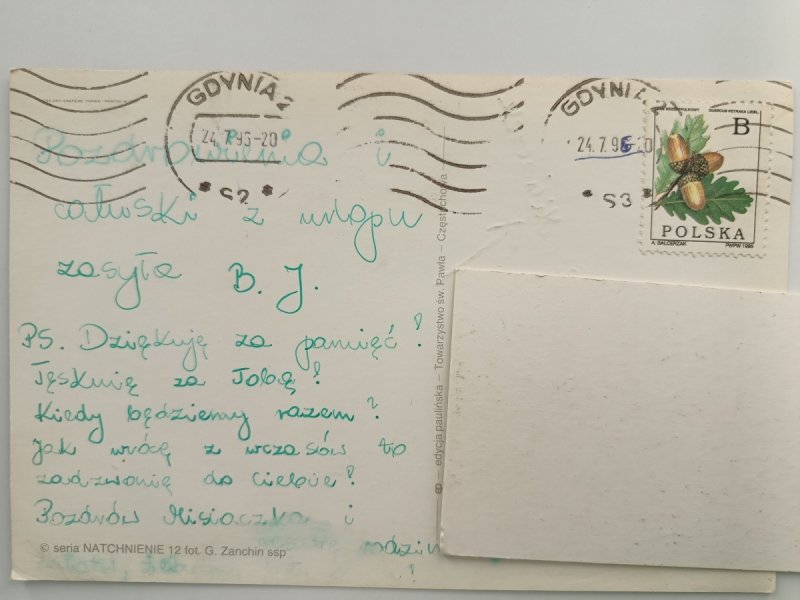 GDYNIA 2
24.7.96-20
* S2 *
GDYNIA
24.7.96-20
* S3 *
QUERCUS PETRAEA LIEBL
B
POLSKA
A. BALCERZAK PWPW 1995
Pozdrowienia i
całuski z urlopu
zasyła B. J.
PS. Dziękuję za pamięć!
Tęsknię za Tobą!
Kiedy będziemy razem?
Jak wrócę z wczasów to
zadzwonię do Ciebie!
Pozdrów Misiaczka i
© seria NATCHNIENIE 12 fot. G. Zanchin ssp
– edycja paulińska – Towarzystwo św. Pawła – Częstochowa